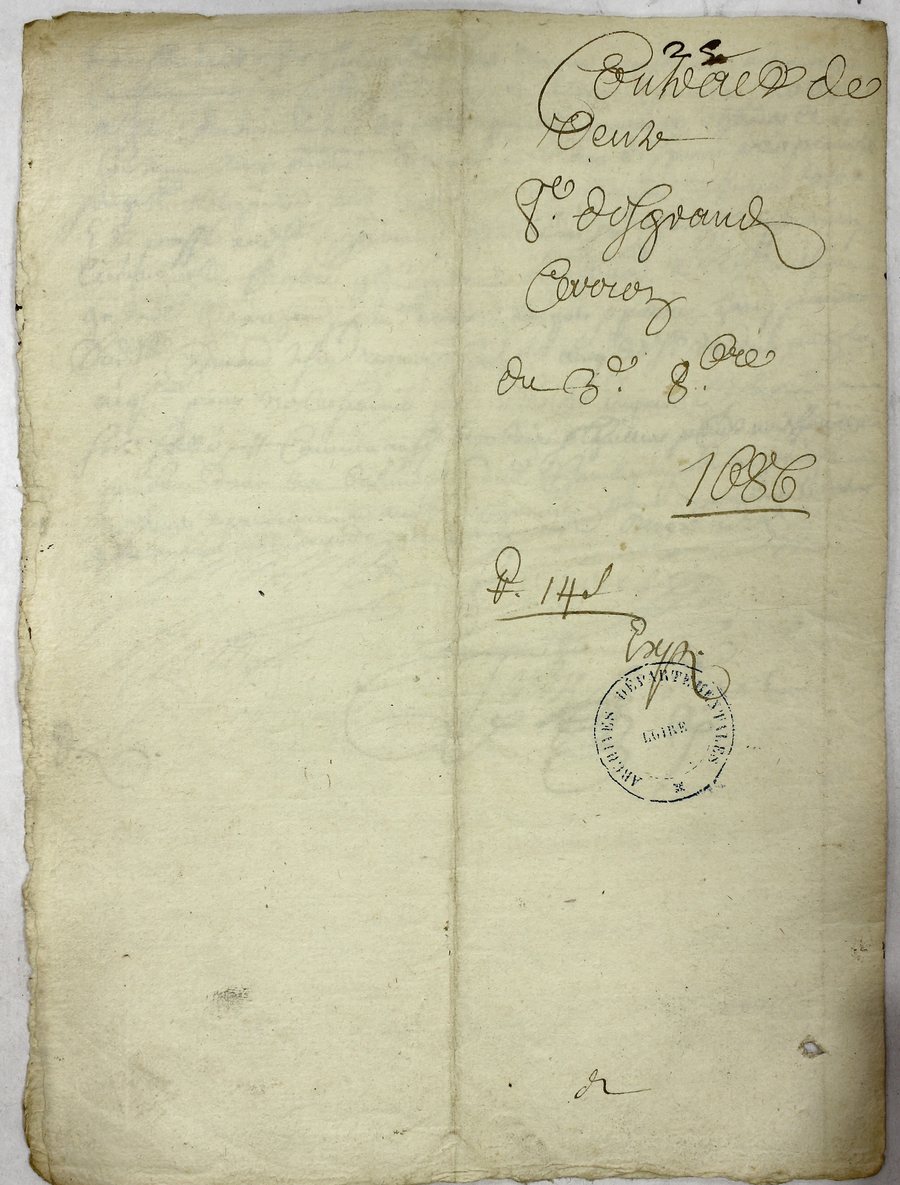 25
Contract de
Vente
Sr. desgrand
du 3e. 8.bre
1686
14
Exp.
ARCHIVES DÉPARTEMENTALES
LOIRE